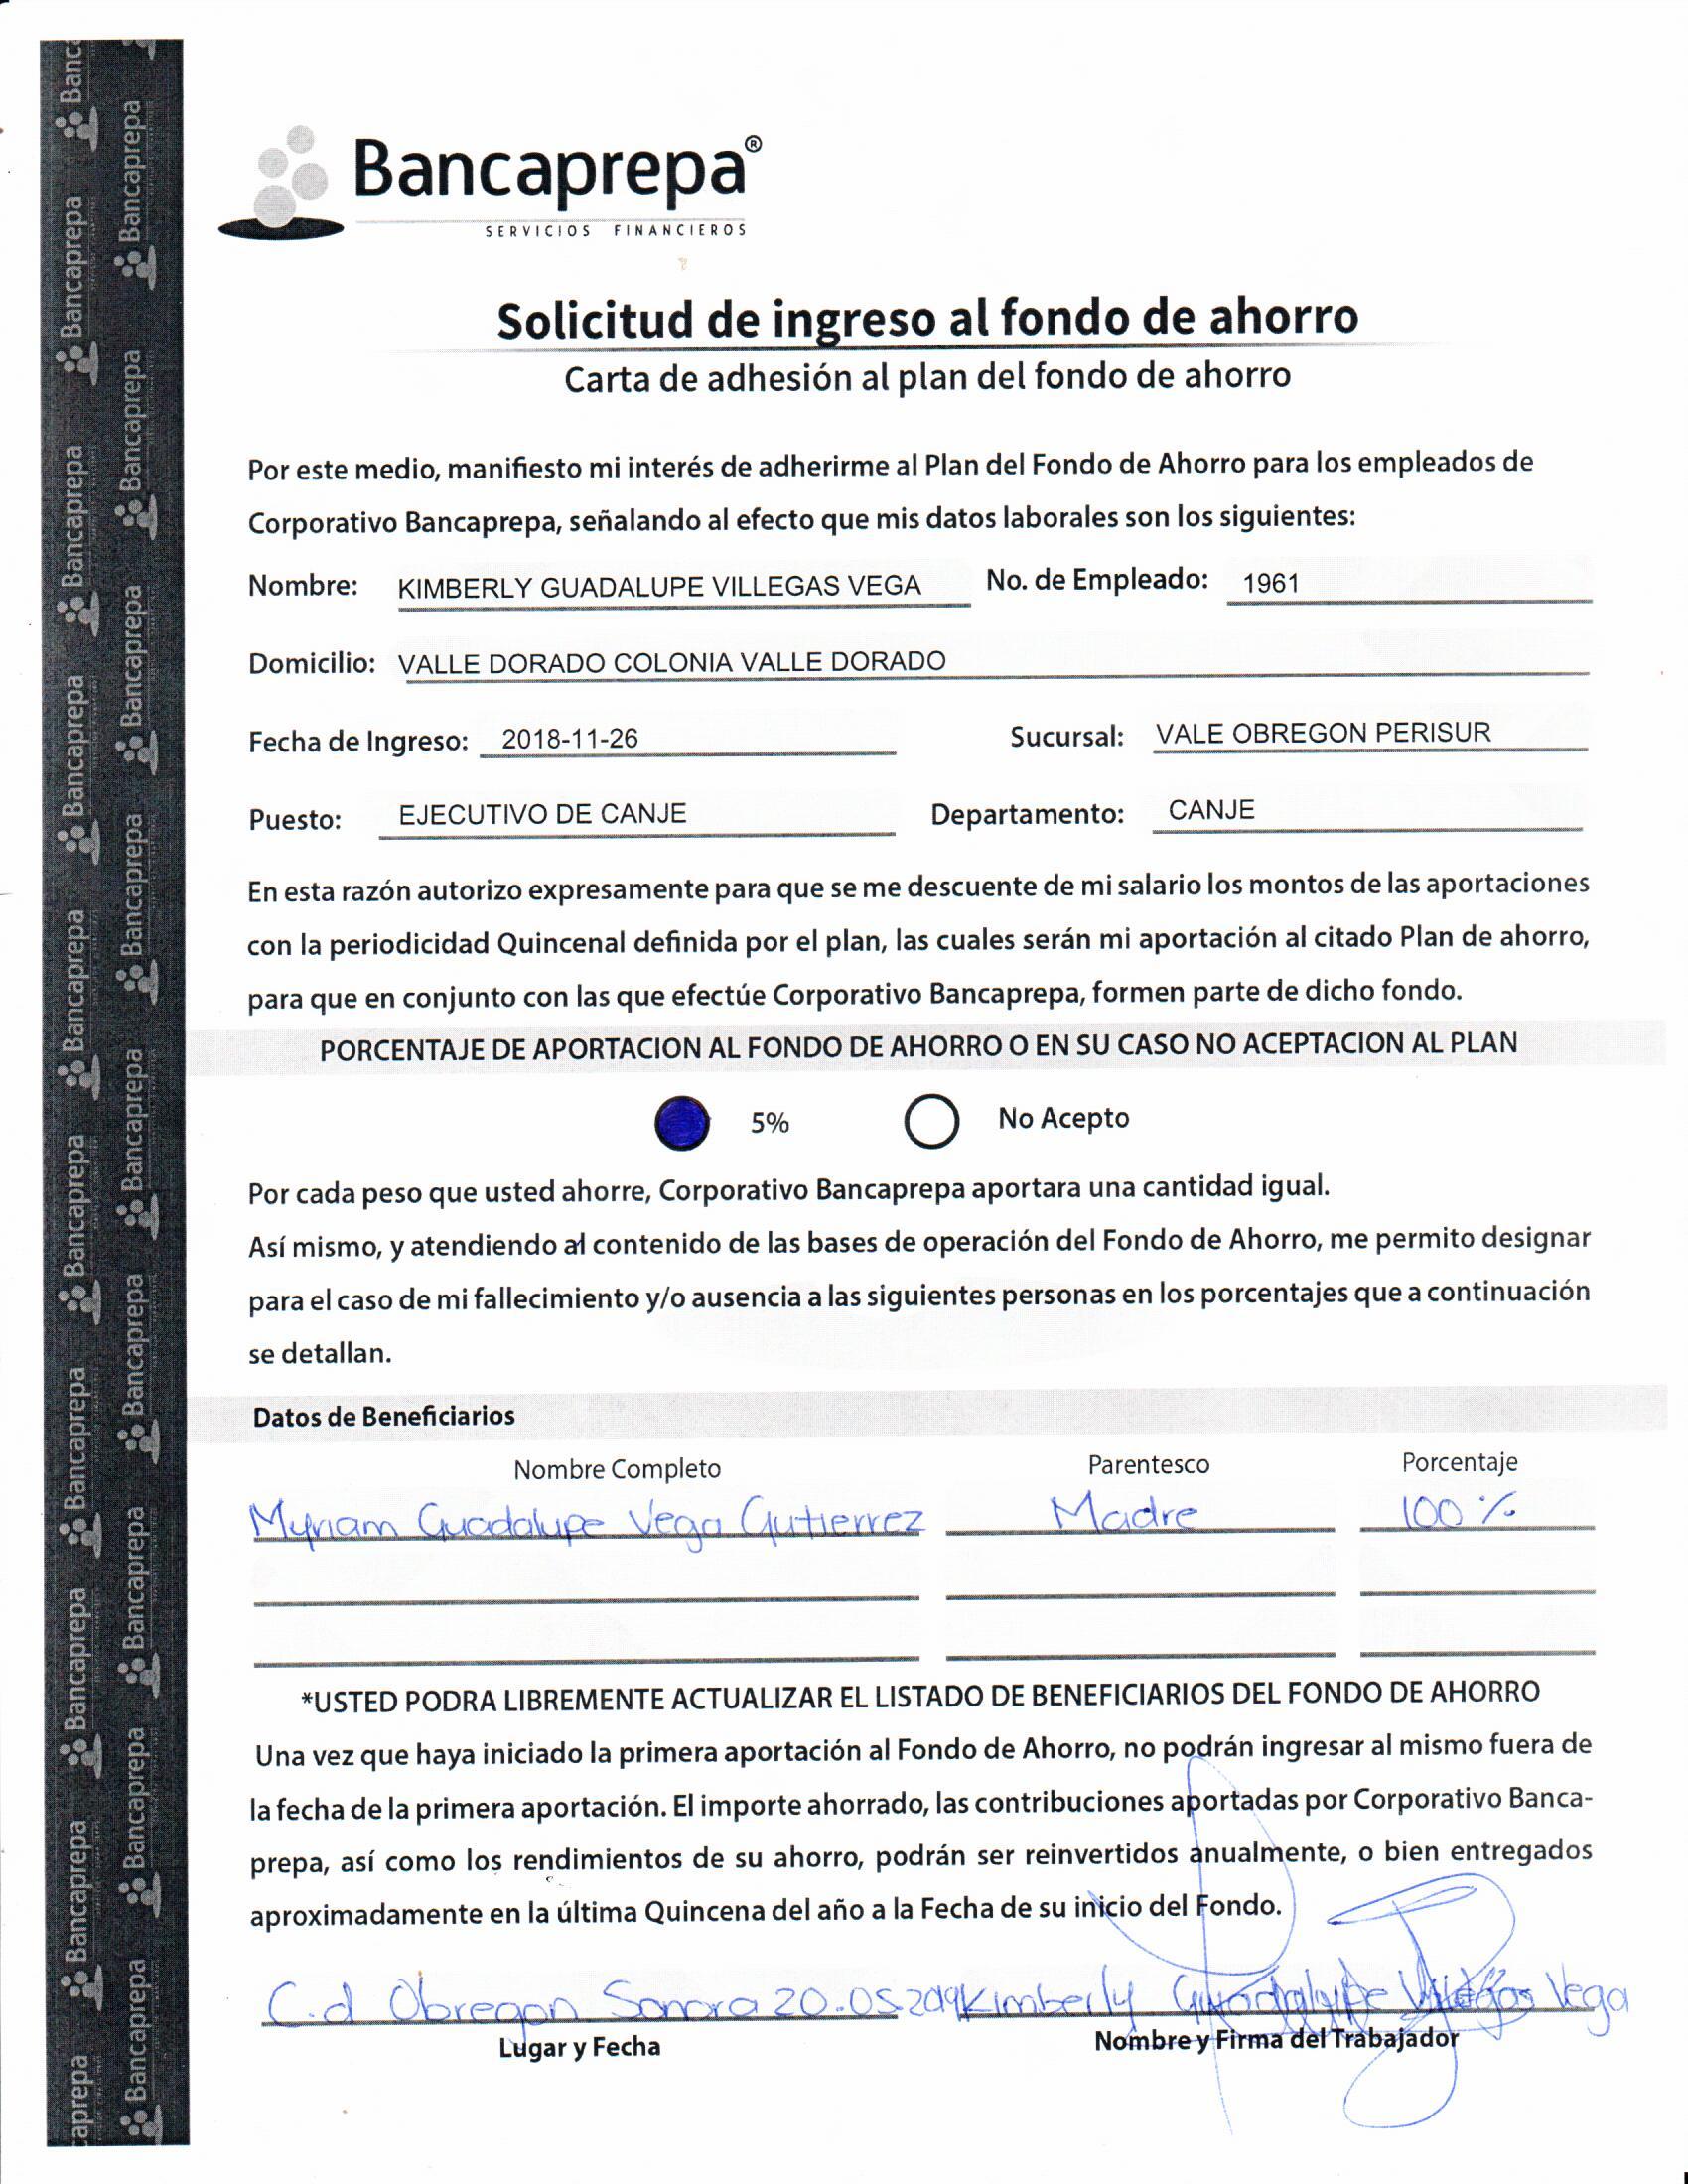 Bancaprepa®
SERVICIOS FINANCIEROS
Solicitud de ingreso al fondo de ahorro
Carta de adhesión al plan del fondo de ahorro
Por este medio, manifiesto mi interés de adherirme al Plan del Fondo de Ahorro para los empleados de
Corporativo Bancaprepa, señalando al efecto que mis datos laborales son los siguientes:
Nombre: KIMBERLY GUADALUPE VILLEGAS VEGA No. de Empleado: 1961
Domicilio: VALLE DORADO COLONIA VALLE DORADO
Fecha de Ingreso: 2018-11-26 Sucursal: VALE OBREGON PERISUR
Puesto: EJECUTIVO DE CANJE Departamento: CANJE
En esta razón autorizo expresamente para que se me descuente de mi salario los montos de las aportaciones
con la periodicidad Quincenal definida por el plan, las cuales serán mi aportación al citado Plan de ahorro,
para que en conjunto con las que efectúe Corporativo Bancaprepa, formen parte de dicho fondo.
PORCENTAJE DE APORTACION AL FONDO DE AHORRO O EN SU CASO NO ACEPTACION AL PLAN
5% No Acepto
Por cada peso que usted ahorre, Corporativo Bancaprepa aportara una cantidad igual.
Así mismo, y atendiendo al contenido de las bases de operación del Fondo de Ahorro, me permito designar
para el caso de mi fallecimiento y/o ausencia a las siguientes personas en los porcentajes que a continuación
se detallan.
Datos de Beneficiarios
Nombre Completo Parentesco Porcentaje
Myriam Guadalupe Vega Gutierrez Madre 100 %
*USTED PODRA LIBREMENTE ACTUALIZAR EL LISTADO DE BENEFICIARIOS DEL FONDO DE AHORRO
Una vez que haya iniciado la primera aportación al Fondo de Ahorro, no podrán ingresar al mismo fuera de
la fecha de la primera aportación. El importe ahorrado, las contribuciones aportadas por Corporativo Banca-
prepa, así como los rendimientos de su ahorro, podrán ser reinvertidos anualmente, o bien entregados
aproximadamente en la última Quincena del año a la Fecha de su inicio del Fondo.
C.d Obregon Sonora 20.05.2019 Kimberly Guadalupe Villegas Vega
Lugar y Fecha Nombre y Firma del Trabajador